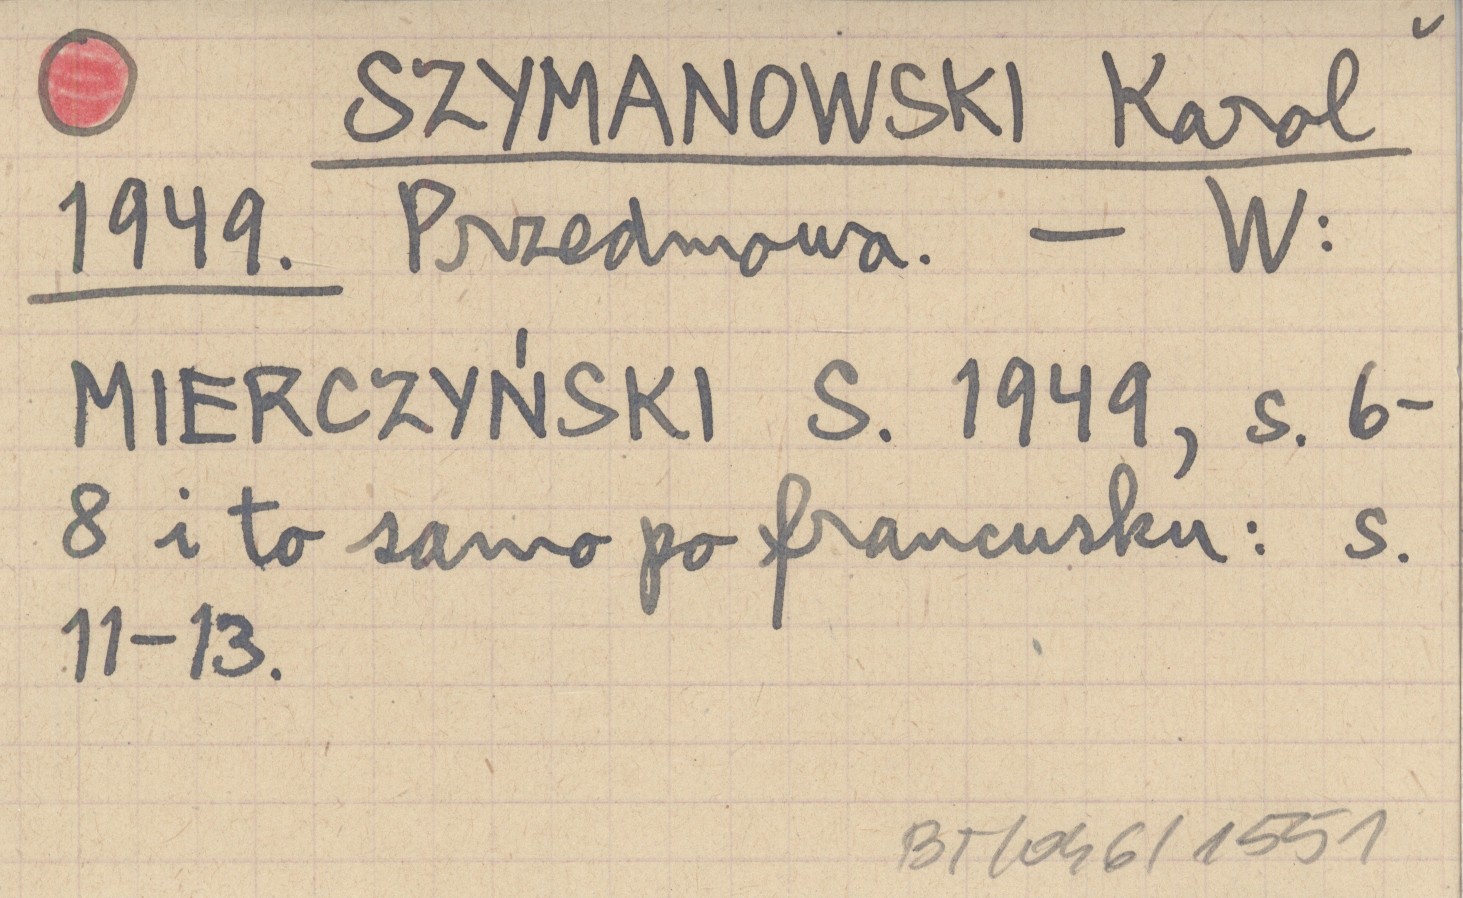 SZYMANOWSKI Karol
1949. Przedmowa. — W:
MIERCZYŃSKI S. 1949, s. 6-
8 i to samo po francusku: s.
11-13.
BT/046/1551